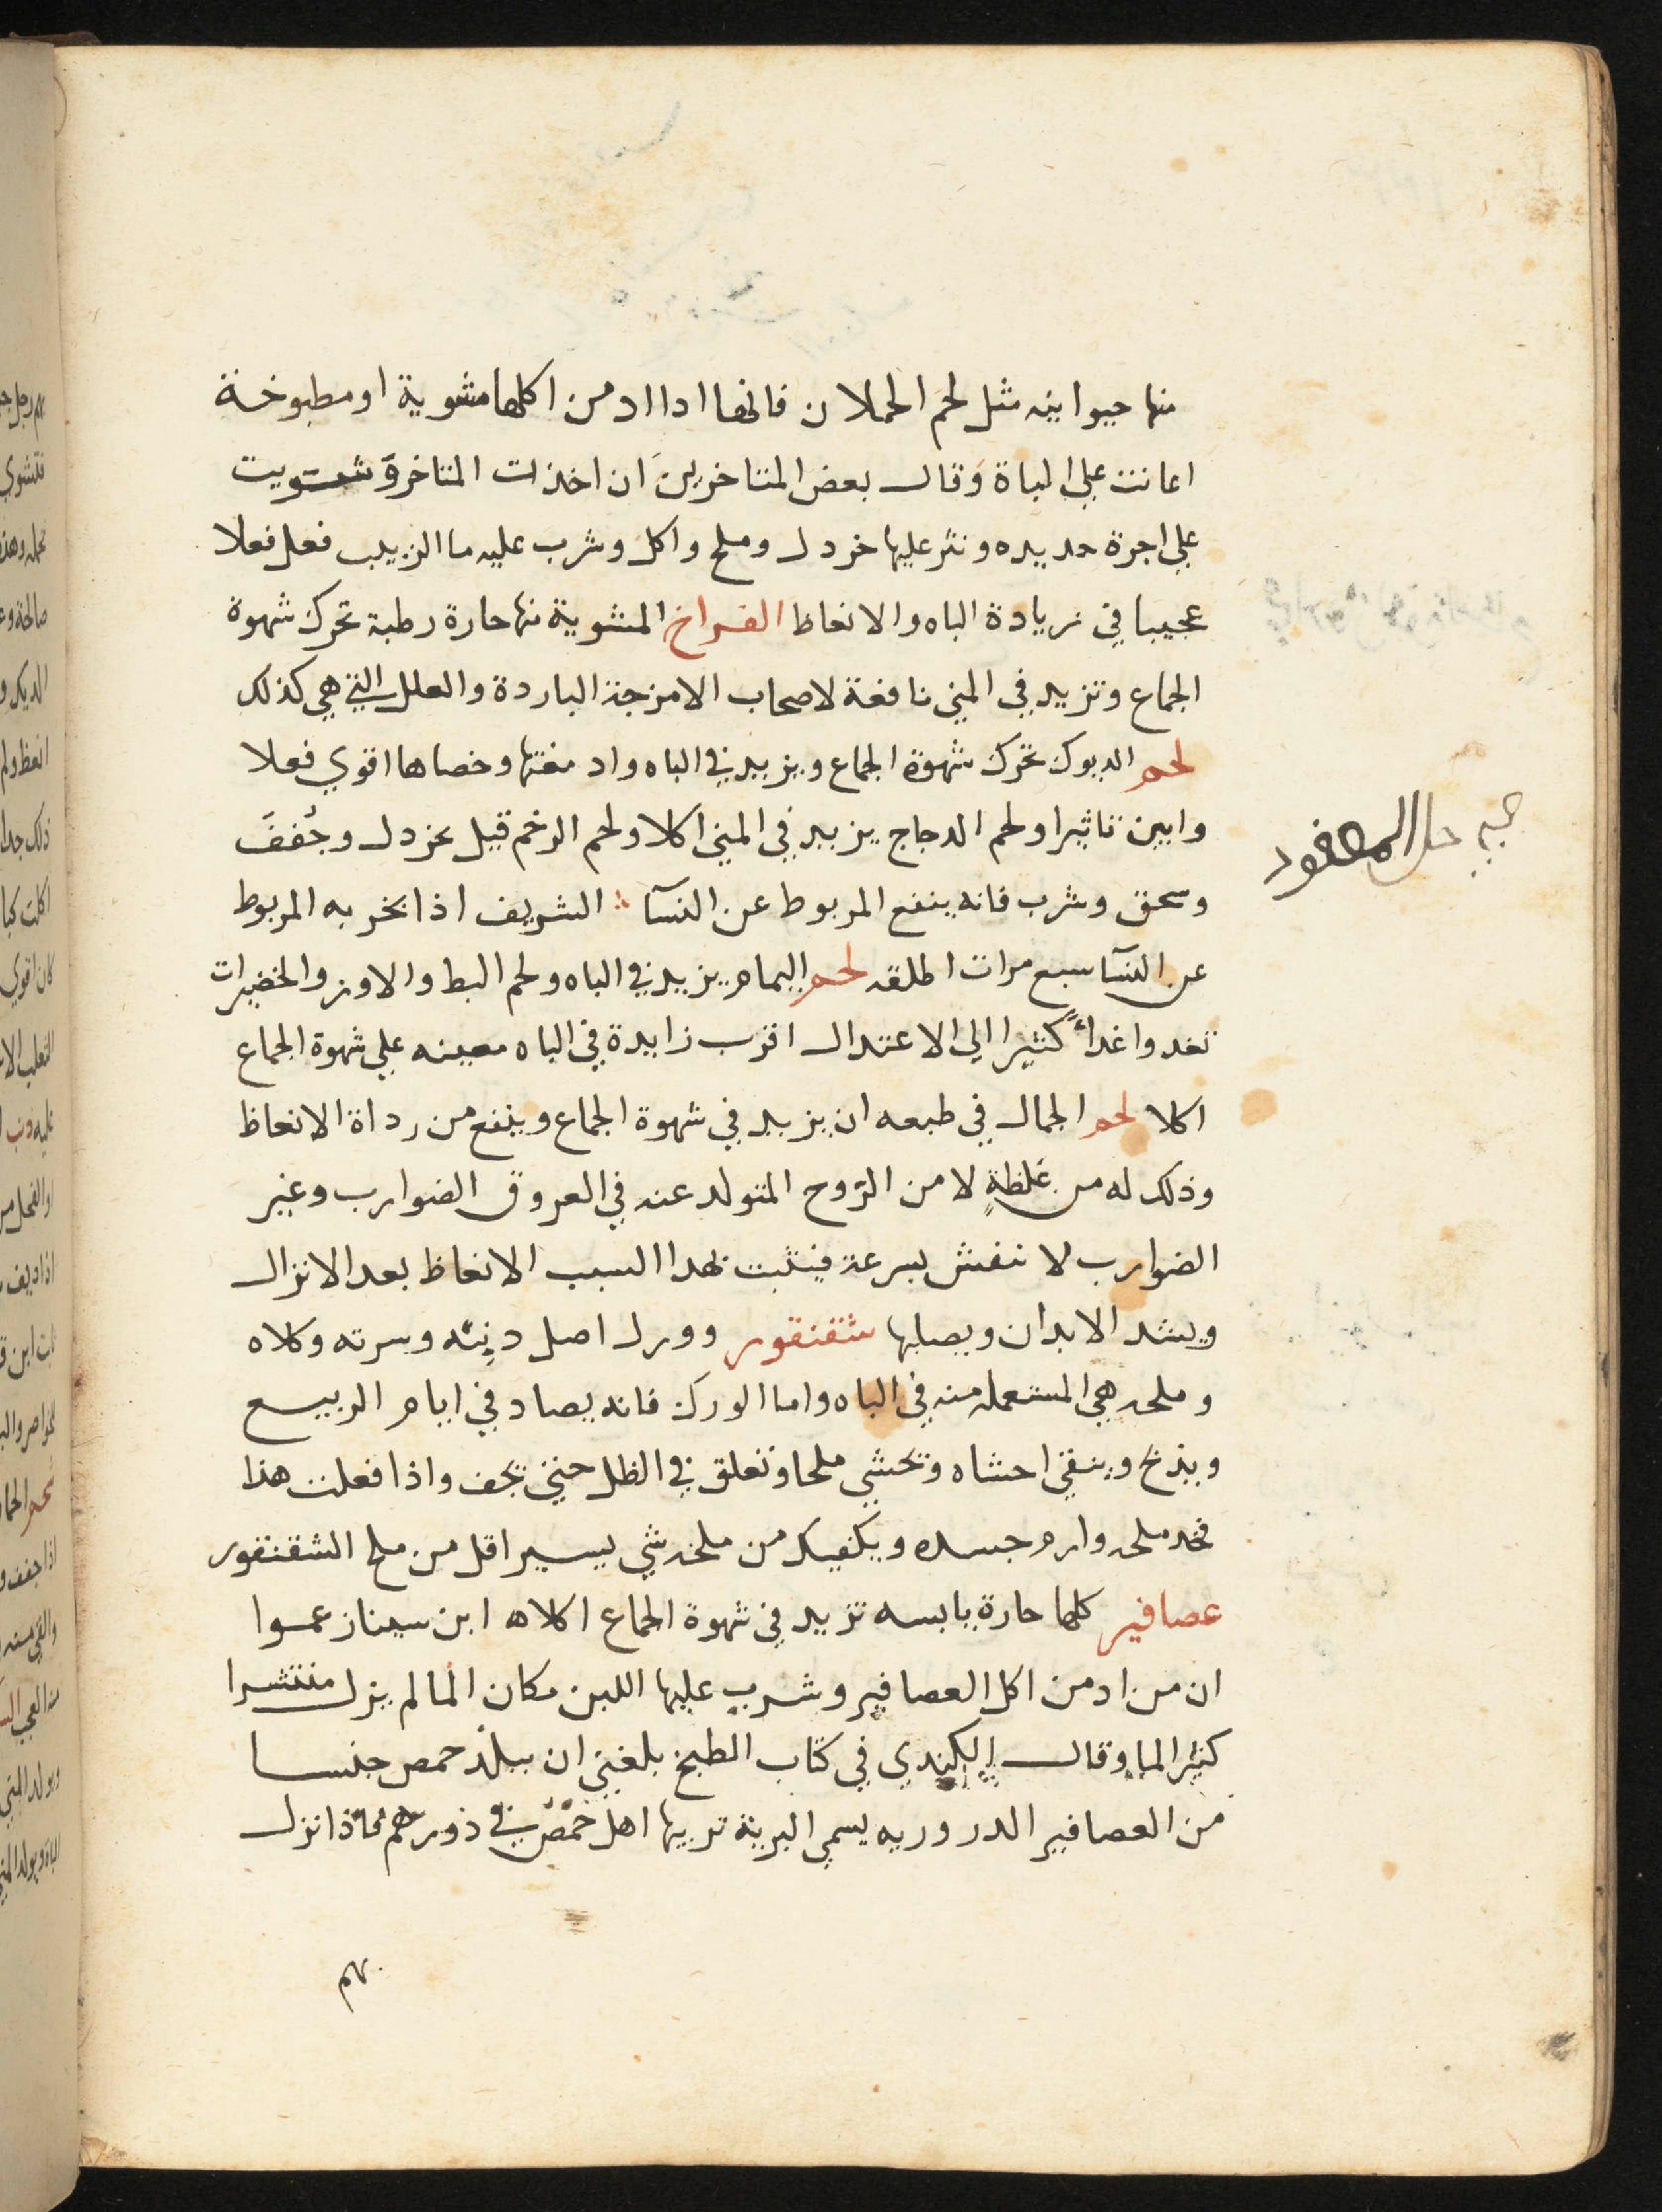 منها حيوانيه مثل لحم الحملان فانها ادا ادمن اكلها مشوية او مطبوخة
اعانت علي الباة وقال بعض المتاخرين ان اخذت المتاخرة شويت
علي اجرة حديده ونثر عليها خردل وملح واكل وشرب عليه ما الزبيب فعل فعلا
عجيبا في زيادة الباه والانعاظ الفراخ المشوية منها حارة رطبة تحرك شهوة
الجماع وتزيد في المني نافعة لاصحاب الامزجة الباردة والعلل التي هي كذلك
لحم الديوك تحرك شهوة الجماع ويزيد في الباه وادمغتها وخصاها اقوي فعلا
وابين تاثيرا ولحم الدجاج يزيد في المني اكلا ولحم الرخم قيل بخردل وجفف
وسحق وشرب فانه ينفع المربوط عن النسآ الشريف اذا بخر به المربوط
عن النسآ سبع مرات اطلقه لحم اليمام يزيد في الباه ولحم البط والاوز والخضيرات
تغدوا غداً كثيرا الي الاعتدال اقرب زايدة في الباه معينه علي شهوة الجماع
اكلا لحم الجمال في طبعه ان يزيد في شهوة الجماع وينفع من رداة الانعاظ
وذلك له من غلظة لا من الروح المتولد عنه في العروق الضوارب وغير
الضوارب لا تنفش بسرعة فيثبت لهدا السبب الانعاظ بعد الانزال
ويشد الابدان ويصلبها شقنقور وورل اصل دنبه وسرته وكلاه
وملحه هي المستعمله منه في الباه واما الورك فانه يصاد في ايام الربيع
ويذبح وينقي احشاه وتحشي ملحا وتعلق في الظل حتي يجف واذا فعلت هذا
فخد ملحه وارم جسده ويكفيك من ملحه شي يسير اقل من ملح الشقنقور
عصافير كلها حارة يابسه تزيد في شهوة الجماع اكلاه ابن سينا زعموا
ان من ادمن اكل العصافير وشرب عليها اللبن مكان الما لم يزل منتشرا
كثير الما وقال الكندي في كتاب الطبخ بلغني ان ببلد حمص جنسا
من العصافير الدروريه يسمي البرية تربيها اهل حمص في دورهم فاذا نزل
حل المعقود
بهم